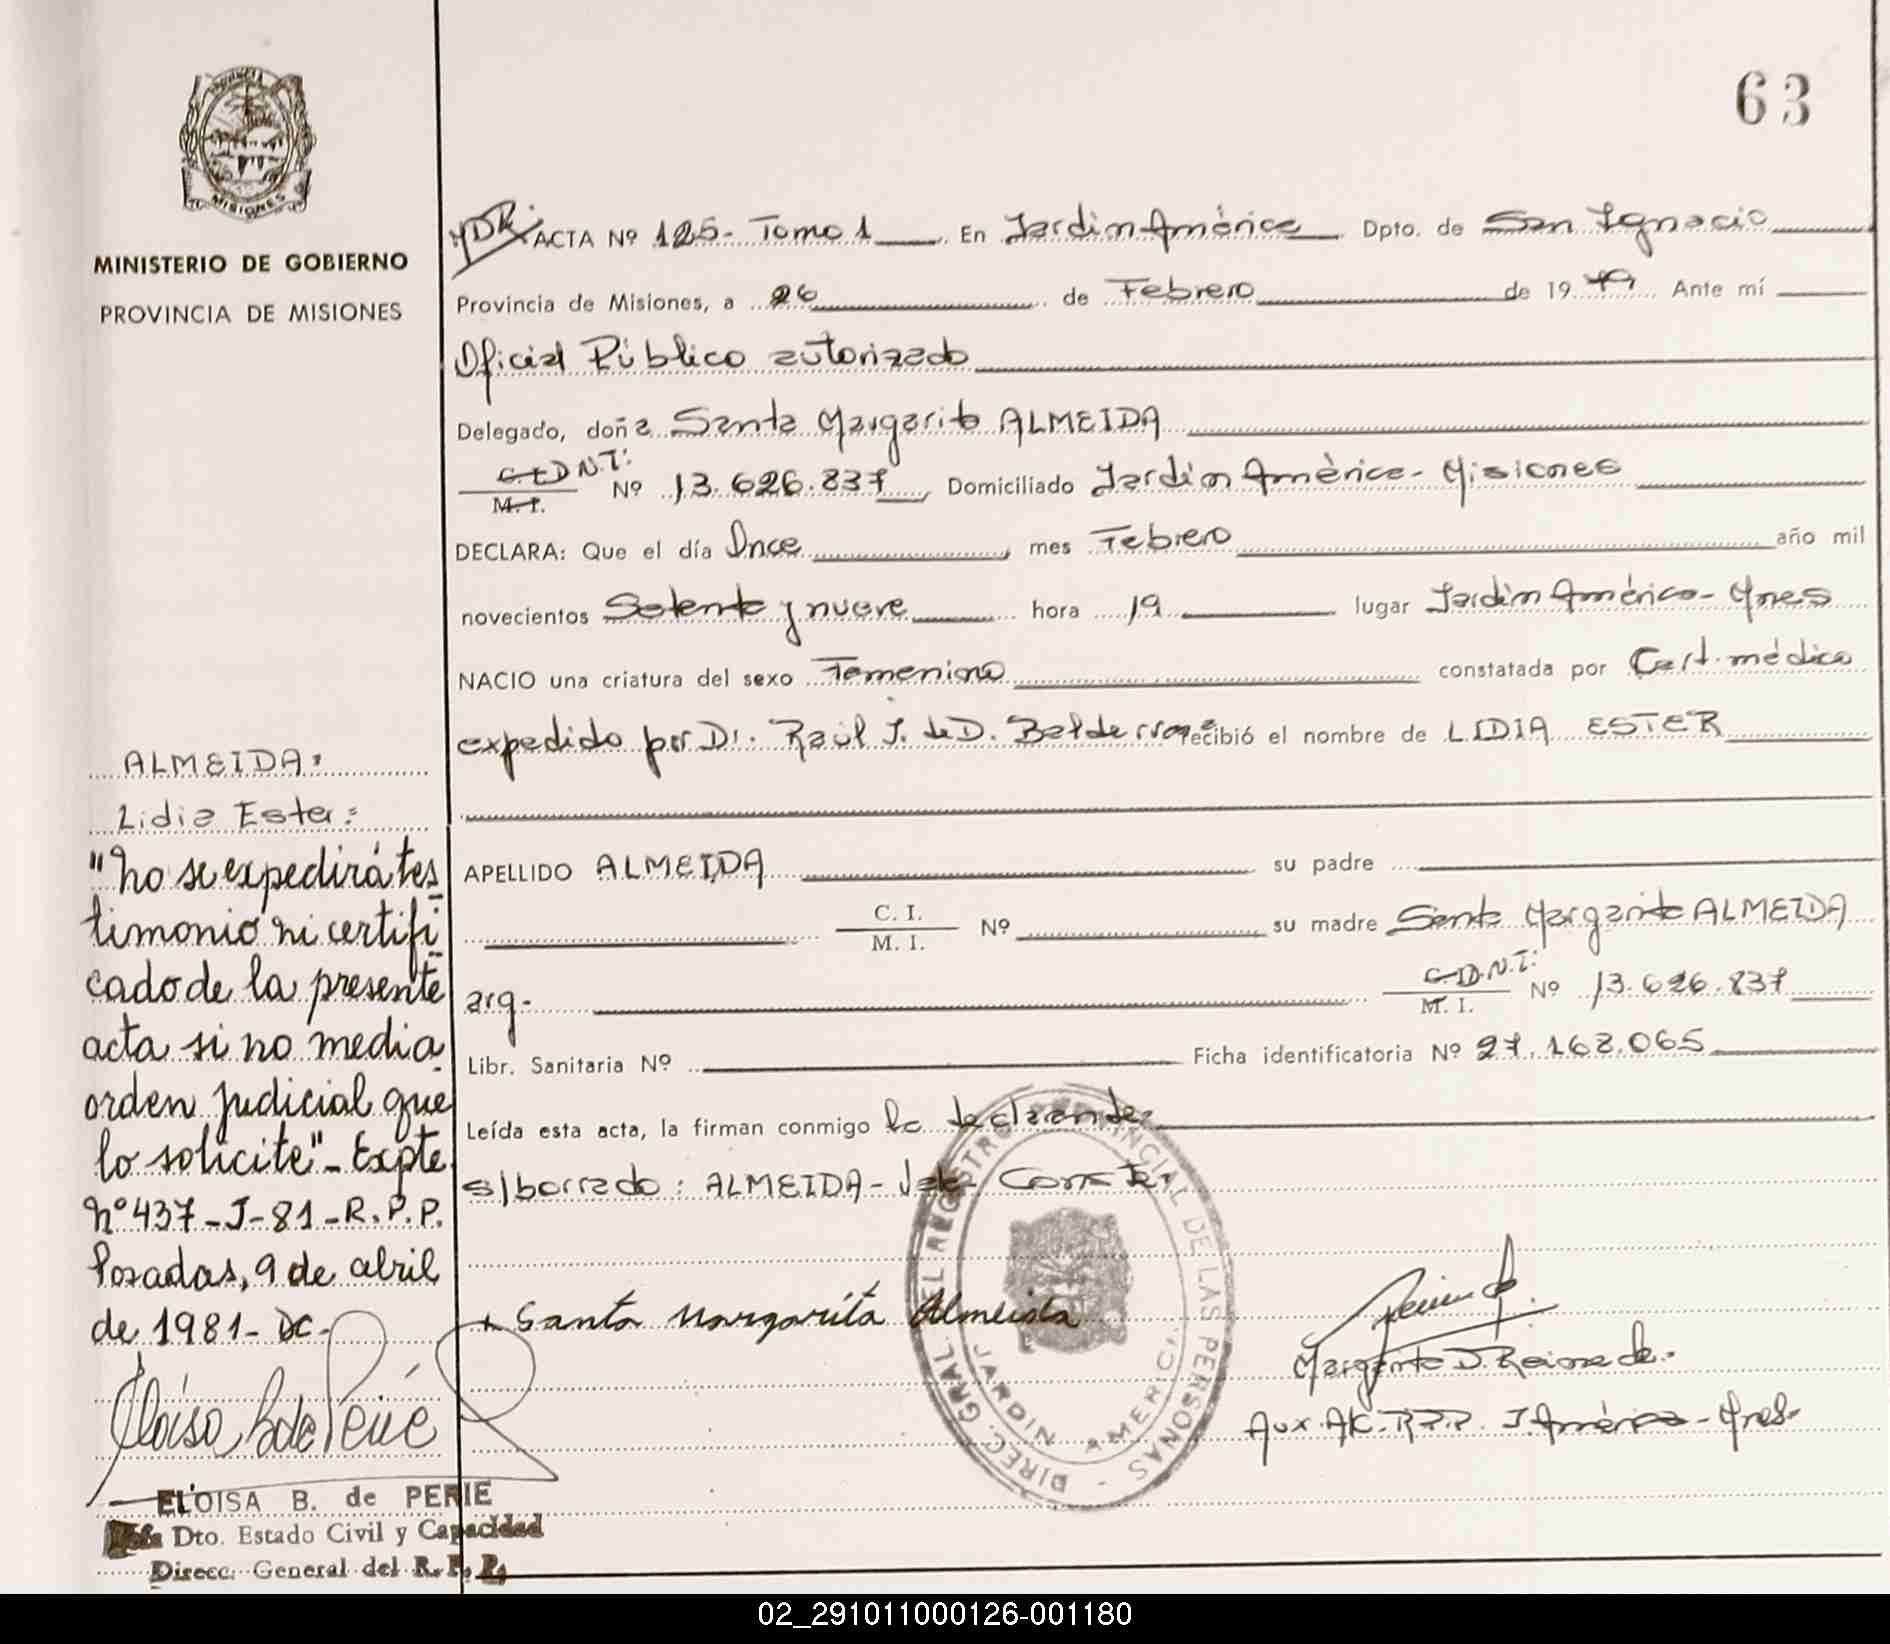 63
MISIONES
MINISTERIO DE GOBIERNO
PROVINCIA DE MISIONES
ACTA Nº 125- Tomo 1 En Jardin América Dpto. de San Ignacio
Provincia de Misiones, a 26 de Febrero de 1979 Ante mí
Oficial Público autorizado
Delegado, doña Santa Margarita ALMEIDA
D.N.I: M.I. Nº 13.626.837, Domiciliado Jardín América- Misiones
DECLARA: Que el día Once, mes Febrero año mil
novecientos Setenta y nueve hora 19 lugar Jardín América- Mnes
NACIO una criatura del sexo Femenino constatada por Cert. médico
expedido por Dr. Raúl J. de D. recibió el nombre de LIDIA ESTER
APELLIDO ALMEIDA su padre
C. I. M. I. Nº su madre Santa Margarita ALMEIDA
arg- D.N.I: M. I. Nº 13.626.837
Libr. Sanitaria Nº Ficha identificatoria Nº 27.162.065
Leída esta acta, la firman conmigo la declarante
s/borrado: ALMEIDA- Vale Conste.
Santa Margarita Almeida
Margarita D. Reina de
Aux. R.P.P. J. América- Mnes-
DIREC. GRAL. DEL REGISTRO PROVINCIAL DE LAS PERSONAS -
JARDIN AMERICA
ALMEIDA:
Lidia Ester:
"No se expedirá tes
timonio ni certifi
cado de la presente
acta si no media
orden judicial que
lo solicite"- Expte
Nº 437-J-81-R.P.P.
Posadas, 9 de abril
de 1981- DC-
Eloisa B de Perié
ELOISA B. de PERIE
Jefa Dto. Estado Civil y Capacidad
Direcc. General del R. P. P.
02_291011000126-001180